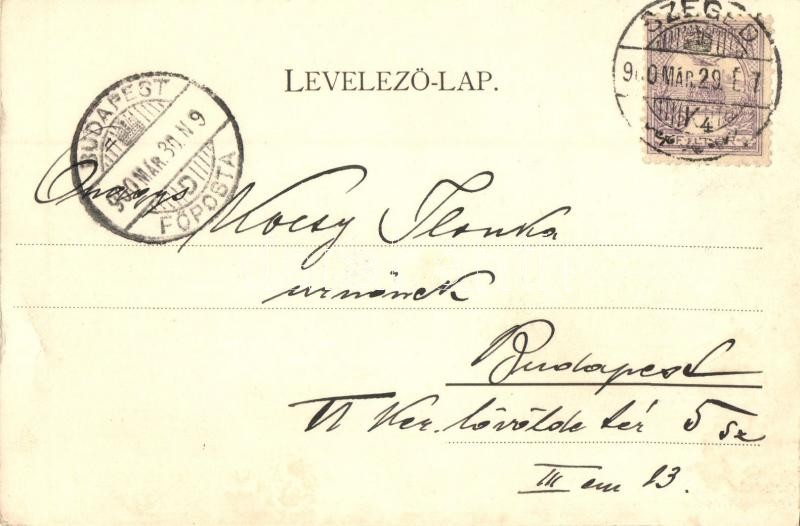 LEVELEZŐ-LAP.
SZEGED
900 MÁR. 29. É 7
BUDAPEST
900 MÁR. 30. N 9
FŐPOSTA
Kocsy Ilonka
urnőnek
Budapest
VI Ker. lövölde tér 5 sz
III em 13.